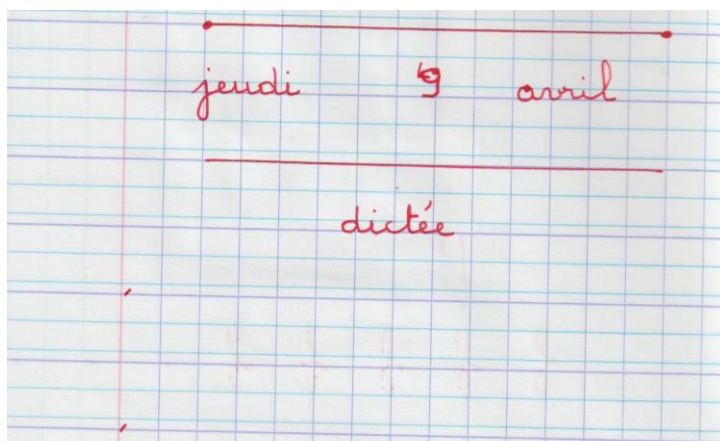 jeudi 9 avril
dictée